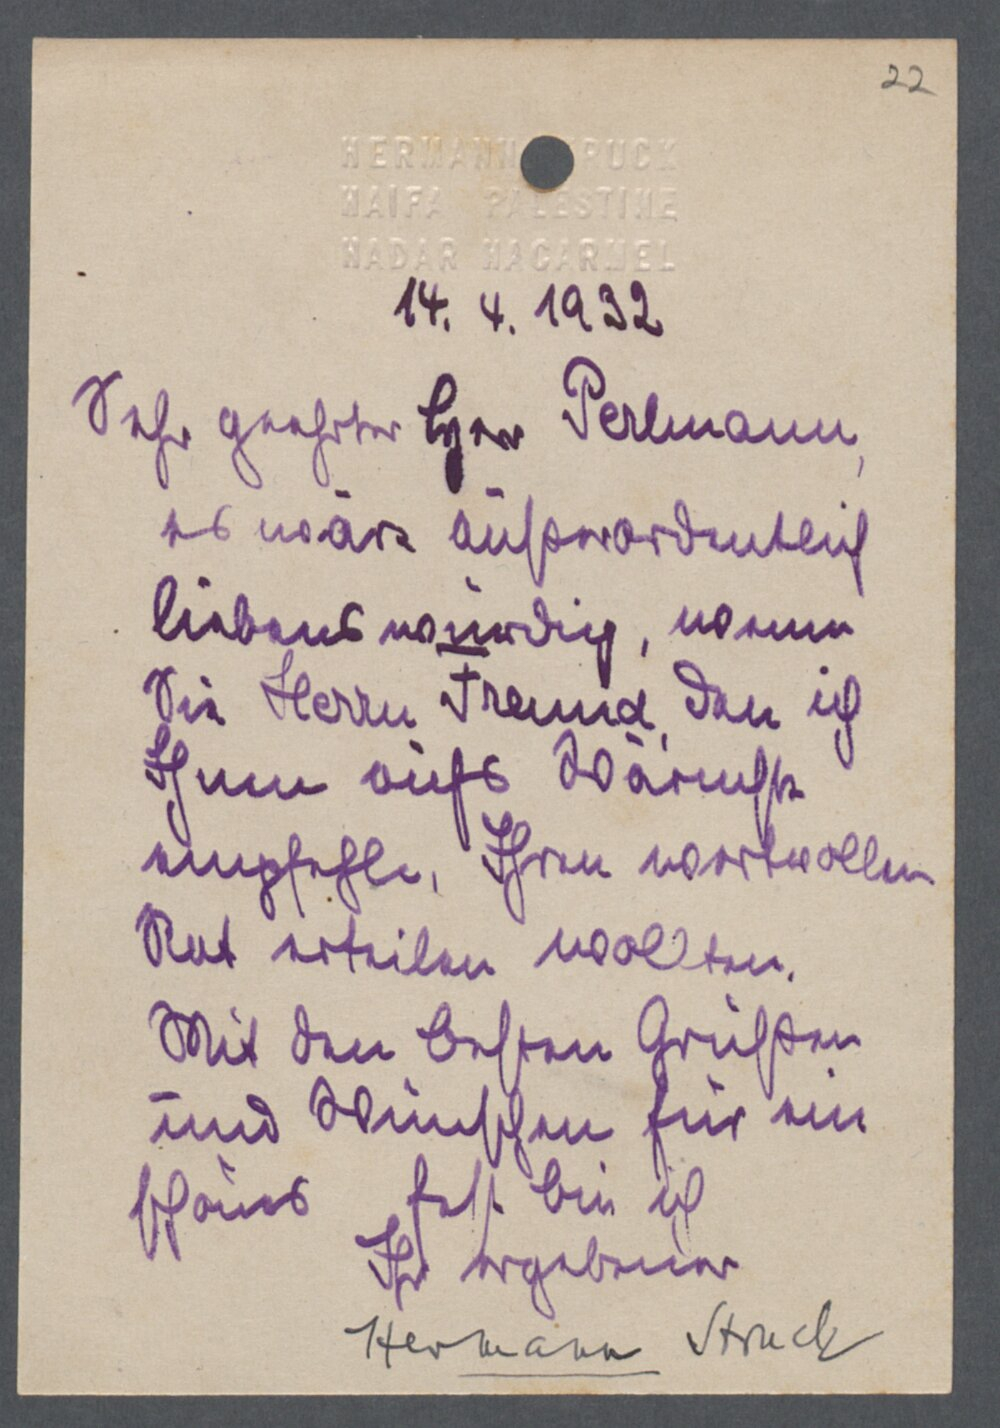 22
HERMANN STRUCK
HAIFA PALESTINE
HADAR HACARMEL
14. 4. 1932
Sehr geehrter Herr Perlmann,
es wäre außerordentlich
liebenswürdig, wenn
Sie Herrn Freund, den ich
Ihnen aufs Wärmste
empfehle, Ihren wertvollen
Rat erteilen wollten.
Mit den besten Grüßen
und Wünschen für ein
schönes Fest bin ich
Ihr ergebener
Hermann Struck